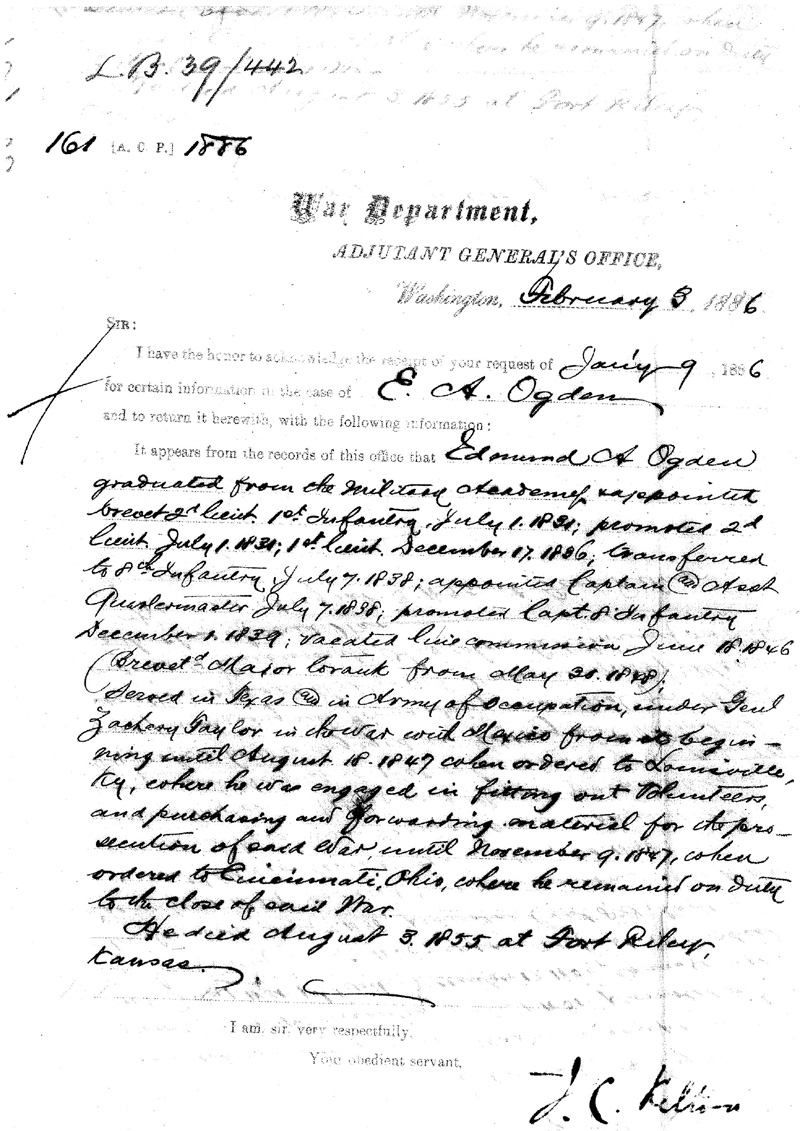 L.B. 39/442
161 [A. C. P.] 1886
War Department,
ADJUTANT GENERAL'S OFFICE,
Washington, February 3, 1886
SIR:
I have the honor to acknowledge the receipt of your request of Jan'y 9, 1886
for certain information in the case of E. A. Ogden
and to return it herewith, with the following information:
It appears from the records of this office that Edmund A Ogden
graduated from the Military Academy & appointed
brevet 2d lieut. 1st Infantry, July 1. 1831; promoted 2d
lieut. July 1. 1831; 1st lieut. December 17. 1836; transferred
to 8th Infantry, July 7. 1838; appointed Captain & Asst
Quartermaster July 7. 1838; promoted Capt. 8 Infantry
December 1. 1839; vacated line commission June 18. 1846
(Brevet'd Major to rank from May 30. 1848);
Served in Texas & in Army of Occupation, under Genl
Zachery Taylor in the War with Mexico from its begin-
ning until August 18. 1847 when ordered to Louisville,
Ky, where he was engaged in fitting out Volunteers,
and purchasing and forwarding material for the pro-
secution of said War, until November 9. 1847, when
ordered to Cincinnati, Ohio, where he remained on duty
to the close of said War.
He died August 3. 1855 at Fort Riley,
Kansas.
I am, sir, very respectfully,
Your obedient servant,
J. C. Kelton